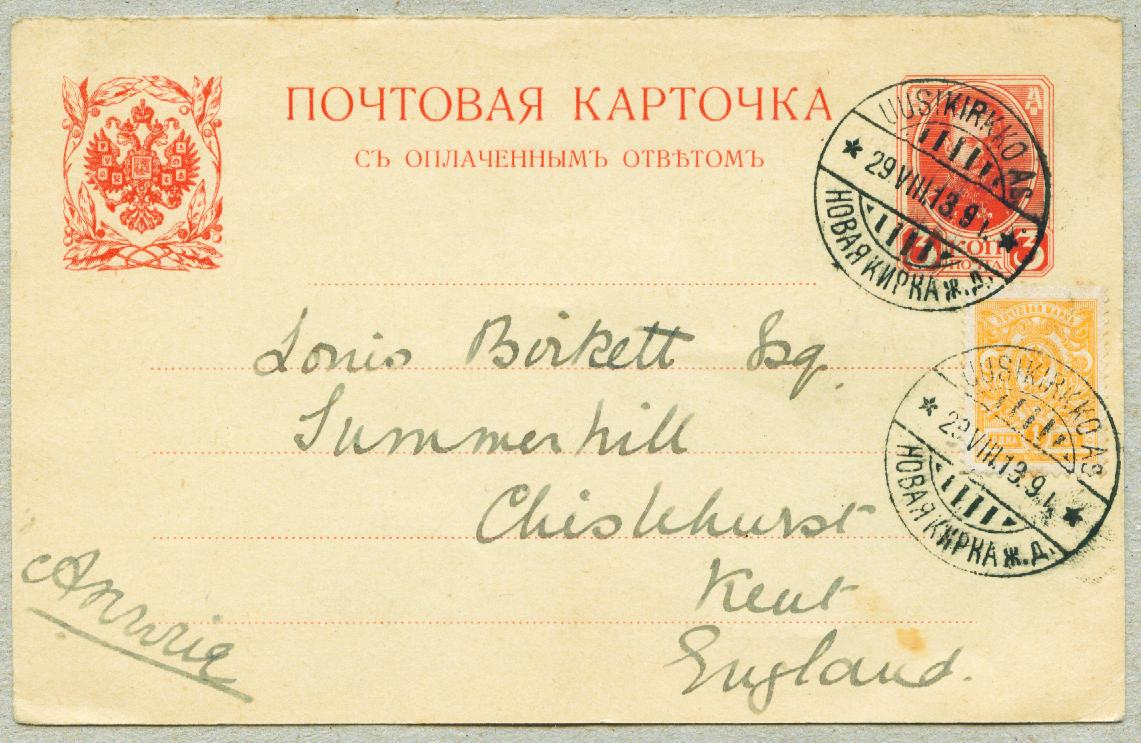 ПОЧТОВАЯ КАРТОЧКА
СЪ ОПЛАЧЕННЫМЪ ОТВѢТОМЪ
UUSIKIRKKO AS
29 VIII.13.9 I.
НОВАЯ КИРКА Ж.Д.
3 КОП 3
Louis Birkett Esq.
Summerhill
Chislehurst
Kent
England.
UUSIKIRKKO AS
29 VIII.13.9 I.
НОВАЯ КИРКА Ж.Д.